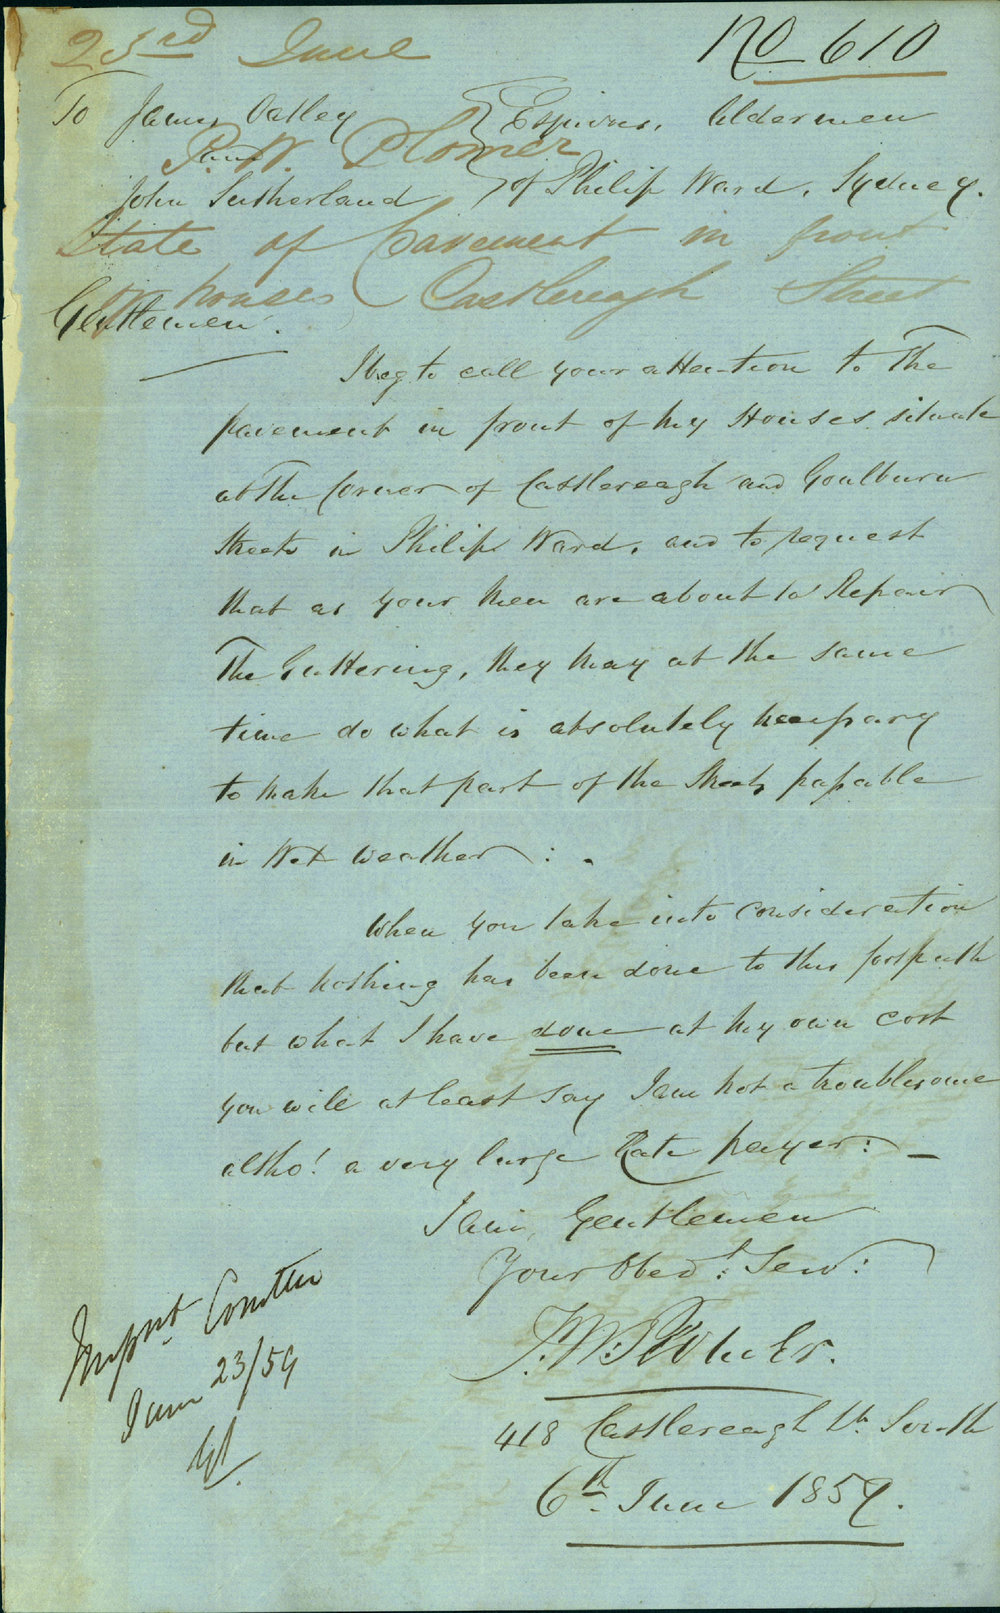 23rd June
No 610
To James Oatley } Esquires, Aldermen
and
John Sutherland } of Philip Ward, Sydney.
W. Plomer
State of Pavement in front
of houses Castlereagh Street
Gentlemen.
I beg to call your attention to The
pavement in front of my Houses situate
at The Corner of Castlereagh and Goulburn
Streets in Philip Ward, and to request
that as your Men are about to Repair
The Guttering, they may at the same
time do what is absolutely necessary
to make that part of the Streets passable
in Wet weather :.
When you take into consideration
that nothing has been done to this footpath
but what I have done at my own cost
you will at least say I am not a troublesome
altho! a very large Rate payer: _
I am, Gentlemen
Your Obedt: Serv:
W. Plomer.
418 Castlereagh St. South
6th June 1859.
Improvt Comttee
June 23/59